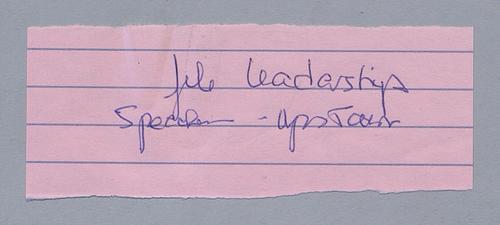 file leadership
Speaker - upstairs